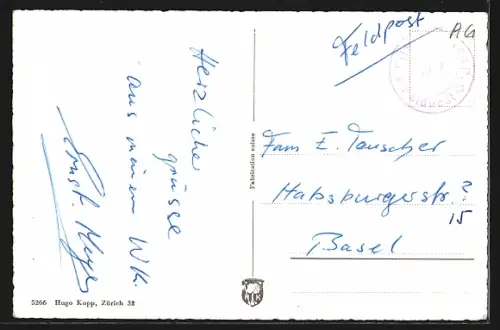 Feldpost
AG
Herzliche
grüsse
aus meinem WK.
Ernst
Fam E. Tauscher
Habsburgerstr. ?
15
Basel
Fabrikation suisse
5266 Hugo Kopp, Zürich 32